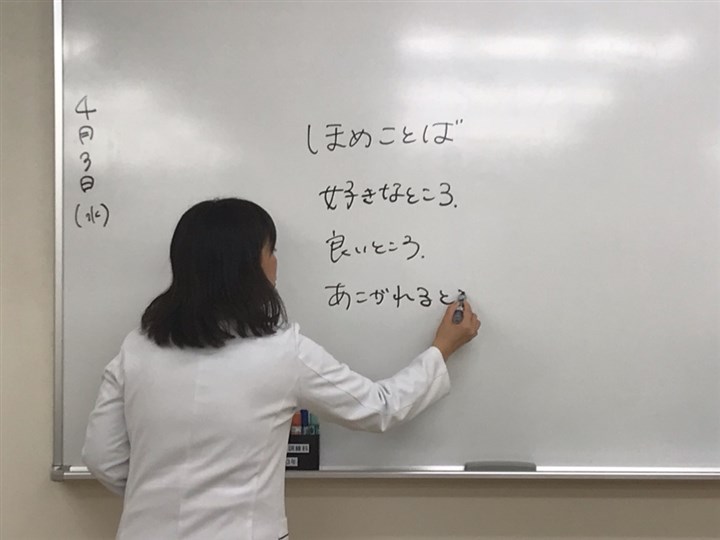 4月3日(水)
ほめことば
好きなところ.
良いところ.
あこがれると